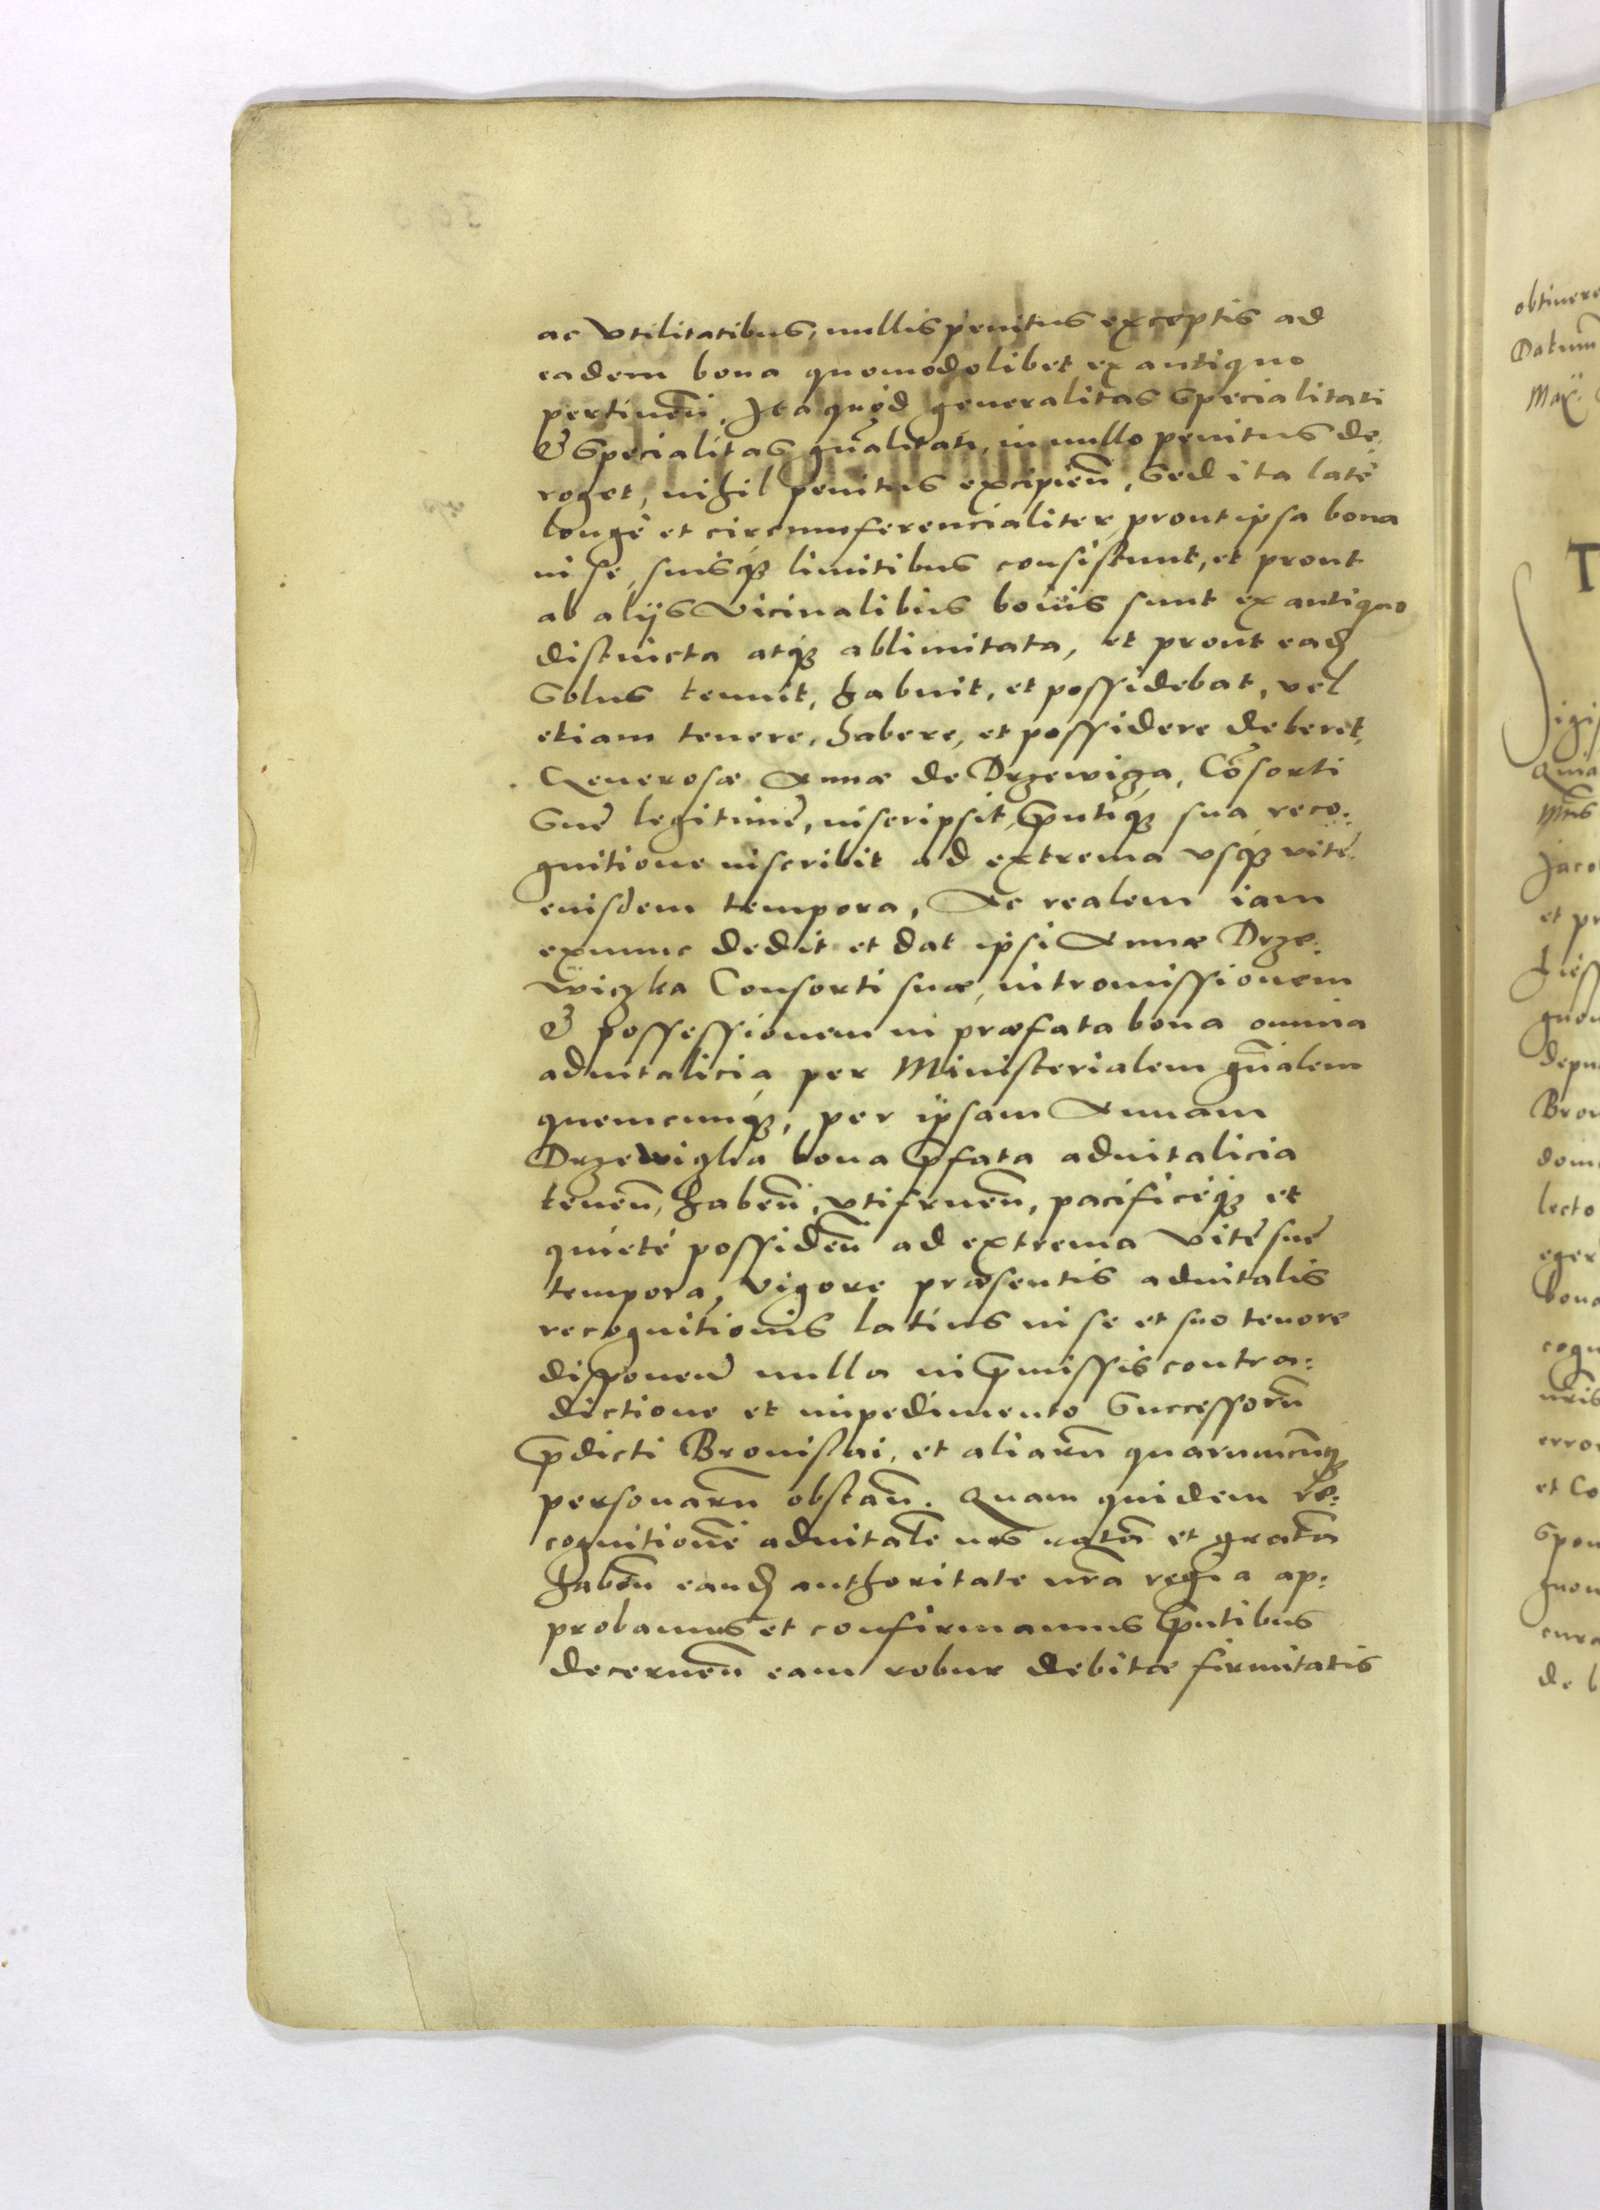 ac vtilitatibus, nullis penitus exceptis ad
eadem bona quomodolibet ex antiquo
pertineñ, Ita quód generalitas specialitati
& specialitas gñalitati, in nullo penitus de,
roget, nihil penitus excipieñ, sed ita laté
longé et circumferencialiter, prout ipsa bona
in se, suisq́ꝫ limitibus consistunt, et prout
ab alijs vicinalibus bonis sunt ex antiquo
distincta atq́ꝫ ablimitata, et prout eadꝫ
solus tenuit, habuit, et possidebat, vel
etiam tenere, habere, et possidere deberet,
Generosæ Annæ de Drzewiza, Cõsorti
sue legitime, inscripsit, p̃ntiqꝫ sua reco:
gnitione inscribit ad extrema vsqꝫ vite
eiusdem tempora, Ac realem iam
exnunc dedit et dat ipsi Annæ Drze:
wiczka Consorti suæ, intromissionem
& possessionem in præfata bona omnia
aduitalicia per Ministerialem gñalem
quemcunq́ꝫ, per ipsam Annam
Drzewizka bona p̃fata aduitalicia
teneñ, habeñ, vtifrueñ, pacificéq́ꝫ et
quieté possideñ ad extrema vite sue
tempora, vigore præsentis aduitalis
recognitionis latius in se et suo tenore
disponeñ nulla in p̃missis contra:
dictione et impedimento successorũ
p̃dicti Brouissai, et aliarũ quarumcũqꝫ
personarũ obstañ. Quam quidem re:
cognitionẽ aduitalẽ nos ratã et gratã
habeñ eandꝫ authoritate nr̃a regia ap:
probamus et confirmamus p̃ntibus
decerneñ eam robur debitæ firmitatis
obtinere
Datum